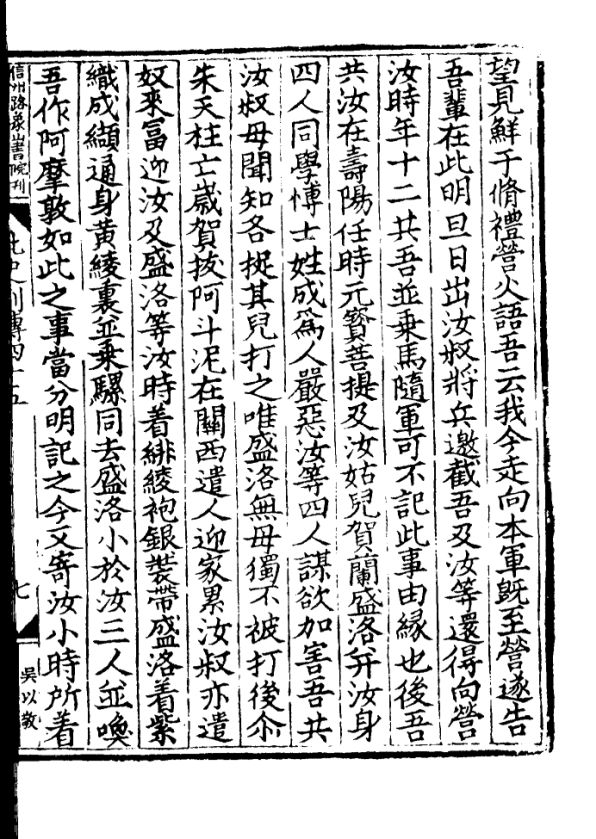 望見鮮于脩禮營火語吾云我今走向本軍旣至營遂告
吾輩在此明旦日出汝叔將兵邀截吾及汝等還得向營
汝時年十二共吾並乗馬隨軍可不記此事由緣也後吾
共汝在壽陽任時元寳菩提及汝姑兒賀蘭盛洛并汝身
四人同學愽士姓成爲人嚴惡汝等四人謀欲加害吾共
汝叔母聞知各捉其兒打之唯盛洛無母獨不被打後尒
朱天柱亡歳賀拔阿斗泥在關西遣人迎家累汝叔亦遣
奴來冨迎汝及盛洛等汝時着緋綾袍銀裝帶盛洛着紫
織成纈通身黃綾裏並乗騾同去盛洛小於汝三人並喚
吾作阿摩敦如此之事當分明記之今又寄汝小時所着
信州路象山書院刋
北史列傳四十五
七
吳以敬